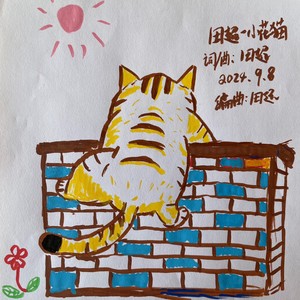 田超一小花猫
词曲:田超
2024.9.8
编曲:田超